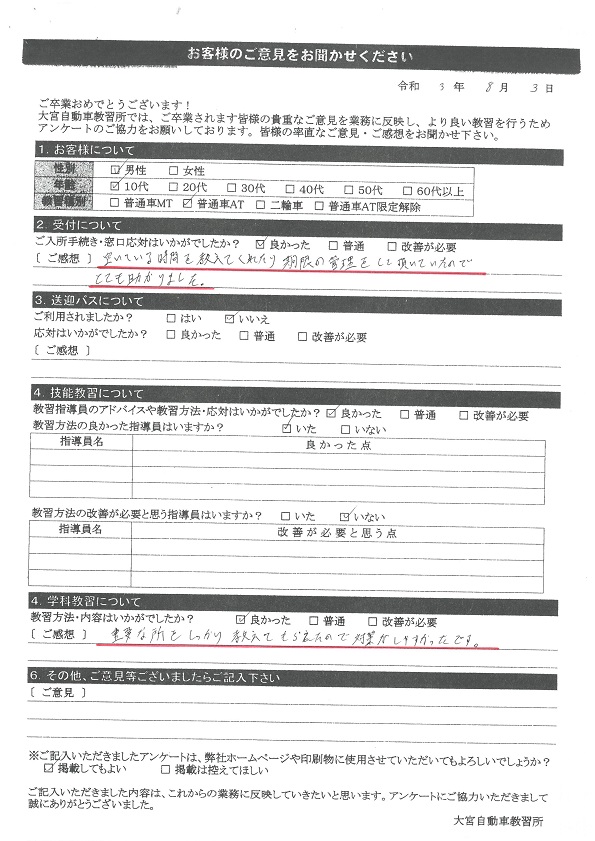 お客様のご意見をお聞かせください
令和 3 年 8 月 3 日
ご卒業おめでとうございます！
大宮自動車教習所では、ご卒業されます皆様の貴重なご意見を業務に反映し、より良い教習を行うため
アンケートのご協力をお願いしております。皆様の率直なご意見・ご感想をお聞かせ下さい。
1. お客様について
性別 ☑男性 □女性
年齢 ☑10代 □20代 □30代 □40代 □50代 □60代以上
教習種別 □普通車MT ☑普通車AT □二輪車 □普通車AT限定解除
2. 受付について
ご入所手続き・窓口応対はいかがでしたか？ ☑良かった □普通 □改善が必要
〔 ご感想 〕 空いている時間を教えてくれたり 期限の管理をして頂いていたので
とても助かりました。
3. 送迎バスについて
ご利用されましたか？ □はい ☑いいえ
応対はいかがでしたか？ □良かった □普通 □改善が必要
〔 ご感想 〕
4. 技能教習について
教習指導員のアドバイスや教習方法・応対はいかがでしたか？ ☑良かった □普通 □改善が必要
教習方法の良かった指導員はいますか？ ☑いた □いない
指導員名 良かった点
教習方法の改善が必要と思う指導員はいますか？ □いた ☑いない
指導員名 改善が必要と思う点
4. 学科教習について
教習方法・内容はいかがでしたか？ ☑良かった □普通 □改善が必要
〔 ご感想 〕 重要な所をしっかり教えてもらえたので対策がしやすかったです。
6. その他、ご意見等ございましたらご記入下さい
〔 ご意見 〕
※ご記入いただきましたアンケートは、弊社ホームページや印刷物に使用させていただいてもよろしいでしょうか？
☑掲載してもよい □掲載は控えてほしい
ご記入いただきました内容は、これからの業務に反映していきたいと思います。アンケートにご協力いただきまして
誠にありがとうございました。
大宮自動車教習所